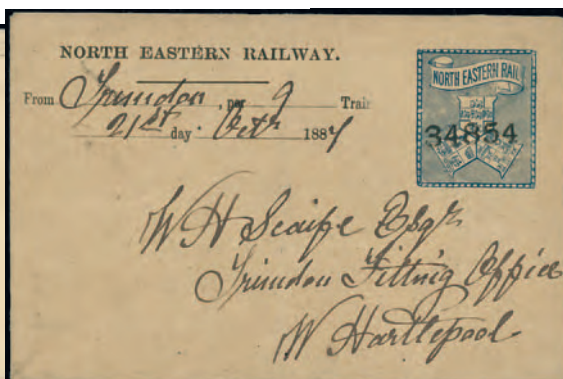 NORTH EASTERN RAILWAY.
From Trimdon, per 9 Train
21st day. Octr 1887
NORTH EASTERN RAIL
34854
W H Scaife Esqr
Trimdon Fitting Office
W Hartlepool